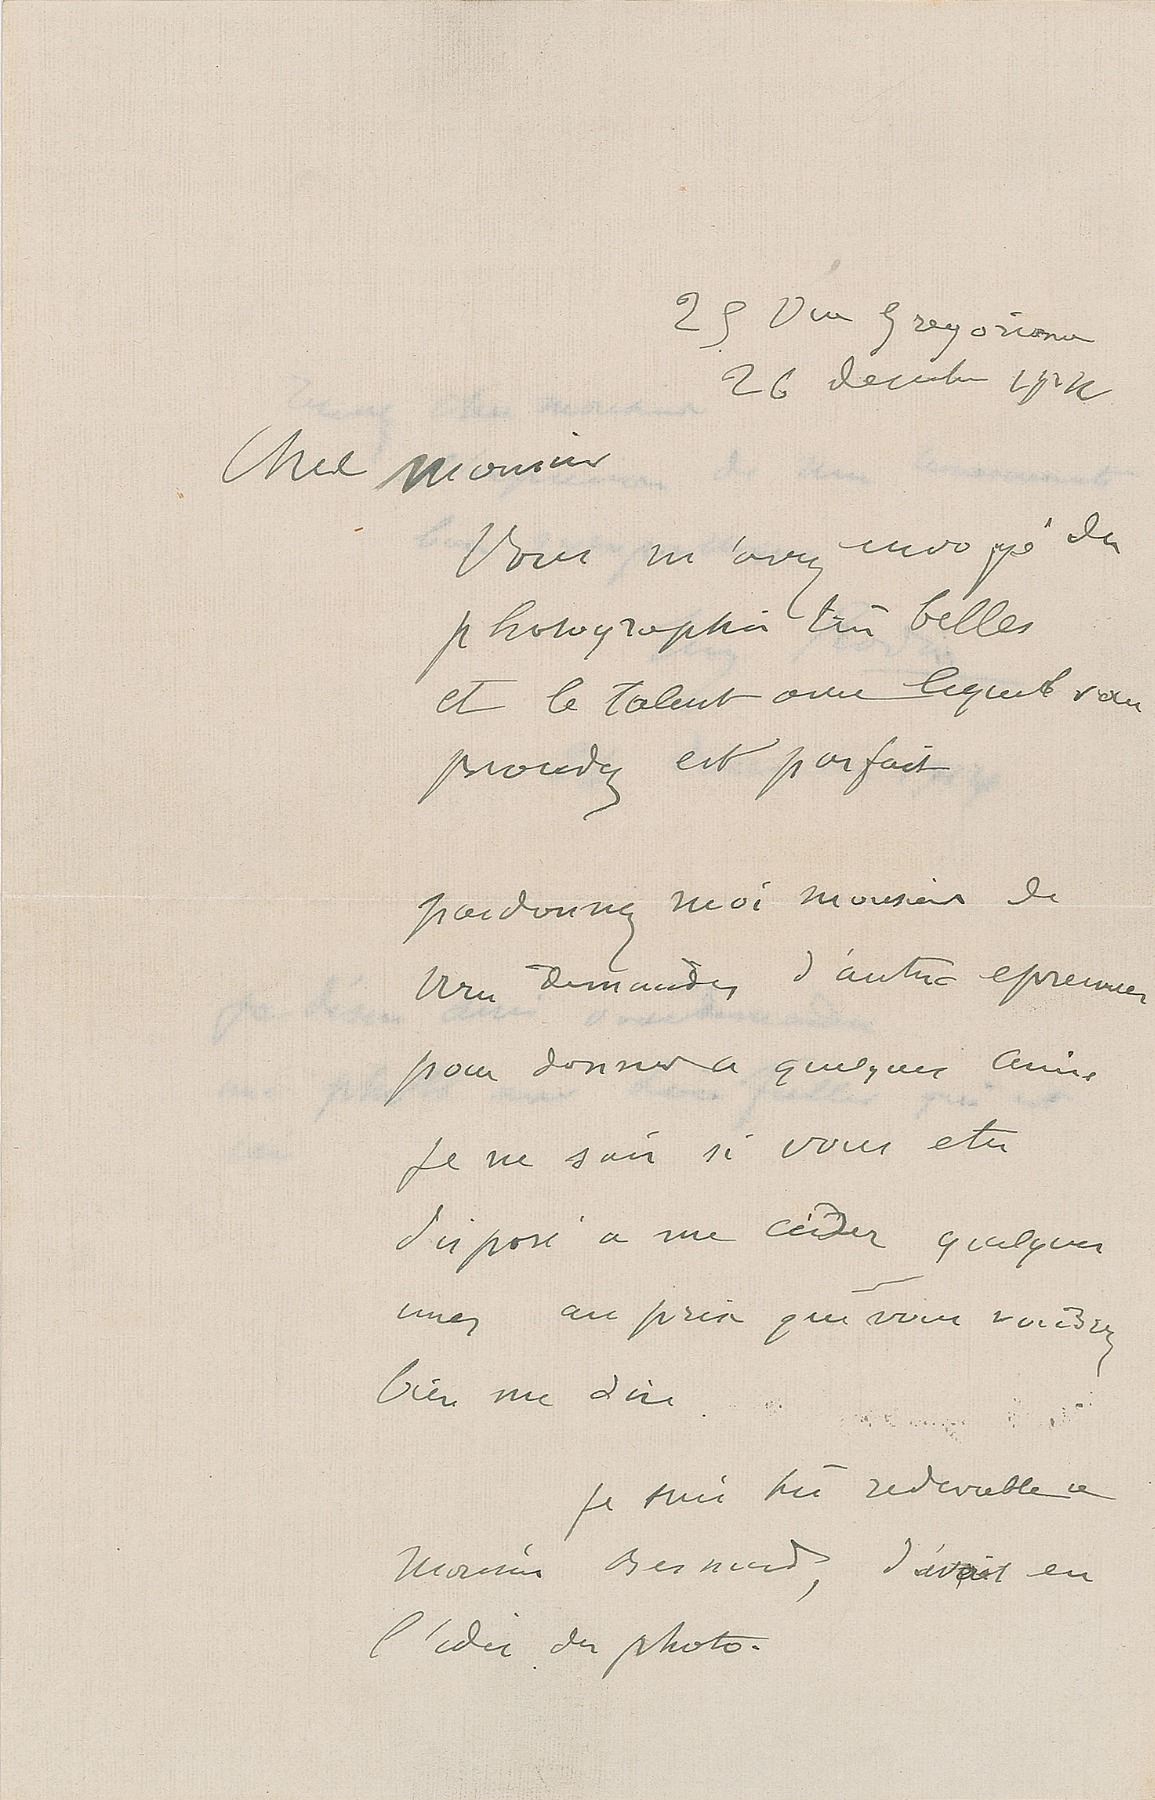 25 Via Gregoriana
26 decembre
Cher Monsieur
Vous m'avez envoyé des
photographies très belles
et le talent avec lequel vous
procedez est parfait
pardonnez moi monsieur de
vous demander d'autre epreuves
pour donner a quelques amis
je ne sais si vous etes
disposé a me ceder quelques
unes au prix que vous voudrez
bien me dire
je suis très redevable a
Monsieur Besnard, d'avoir eu
l'idée des photo.